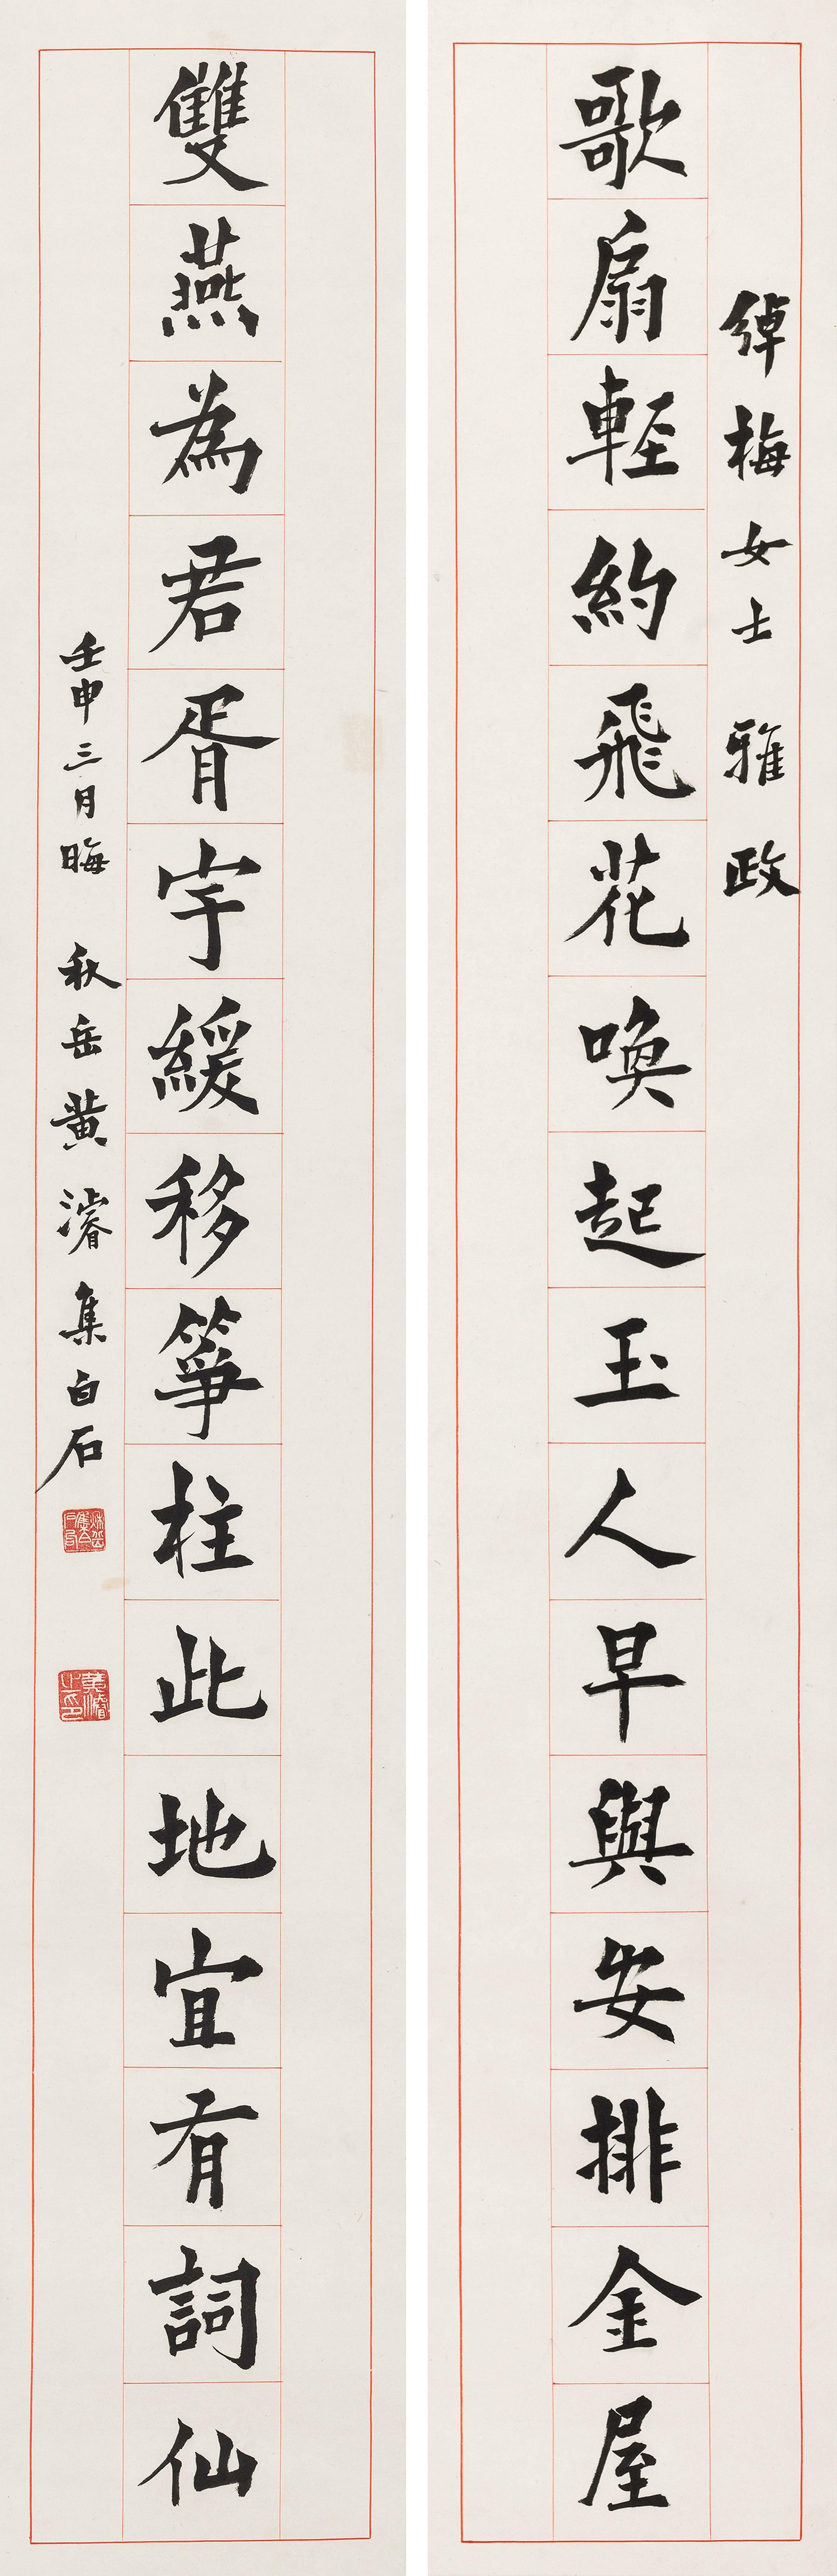 綽梅女士雅政
歌扇輕約飛花喚起玉人早與安排金屋
雙燕為君胥宇緩移箏柱此地宜有詞仙
壬申三月晦 秋岳黃濬集白石
黃濬之印